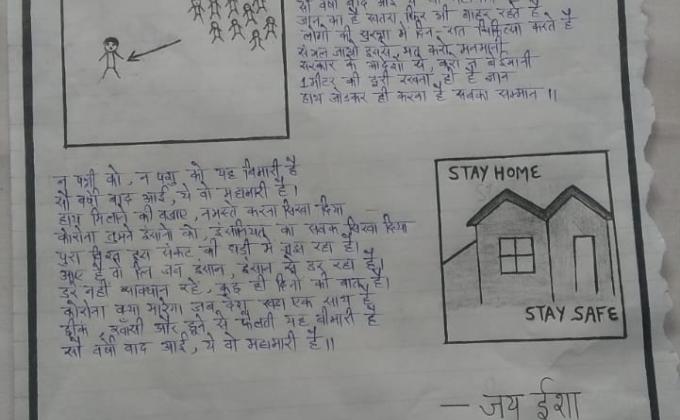 सौ वर्षों बाद आई
जान का है खतरा फिर भी बाहर रहते है
लोगो की सुरक्षा मे दिन रात चिकित्सा करते है
संभल जाओ इससे, मत करो मनमानी
सरकार के आदेशो से, करो न बेईमानी
1 मीटर की दूरी रखना ही है ज्ञान
हाथ जोडकर ही करना है सबका सम्मान ।।
न पक्षी को, न पशु को यह बिमारी है
सौ वर्षो बाद आई, ये वो महामारी है।
हाथ मिलाने की बजाए, नमस्ते करना सिखा दिया
कोरोना तुमने इंसानो को, इंसानियत का सबक सिखा दिया
पुरा विश्व इस संकट की घडी मे जूझ रहा है।
आए है वो दिन जब इंसान, इंसान से डर रहा है।
डरे नही सावधान रहे, कुछ ही दिनो की बात है।
कोरोना क्या मारेगा जब
एक साथ है
छींक, खाँसी और छूने से फैलती यह बीमारी है
सौ वर्षो बाद आई, ये वो महामारी है।।
STAY HOME
STAY SAFE
— जय ईशा